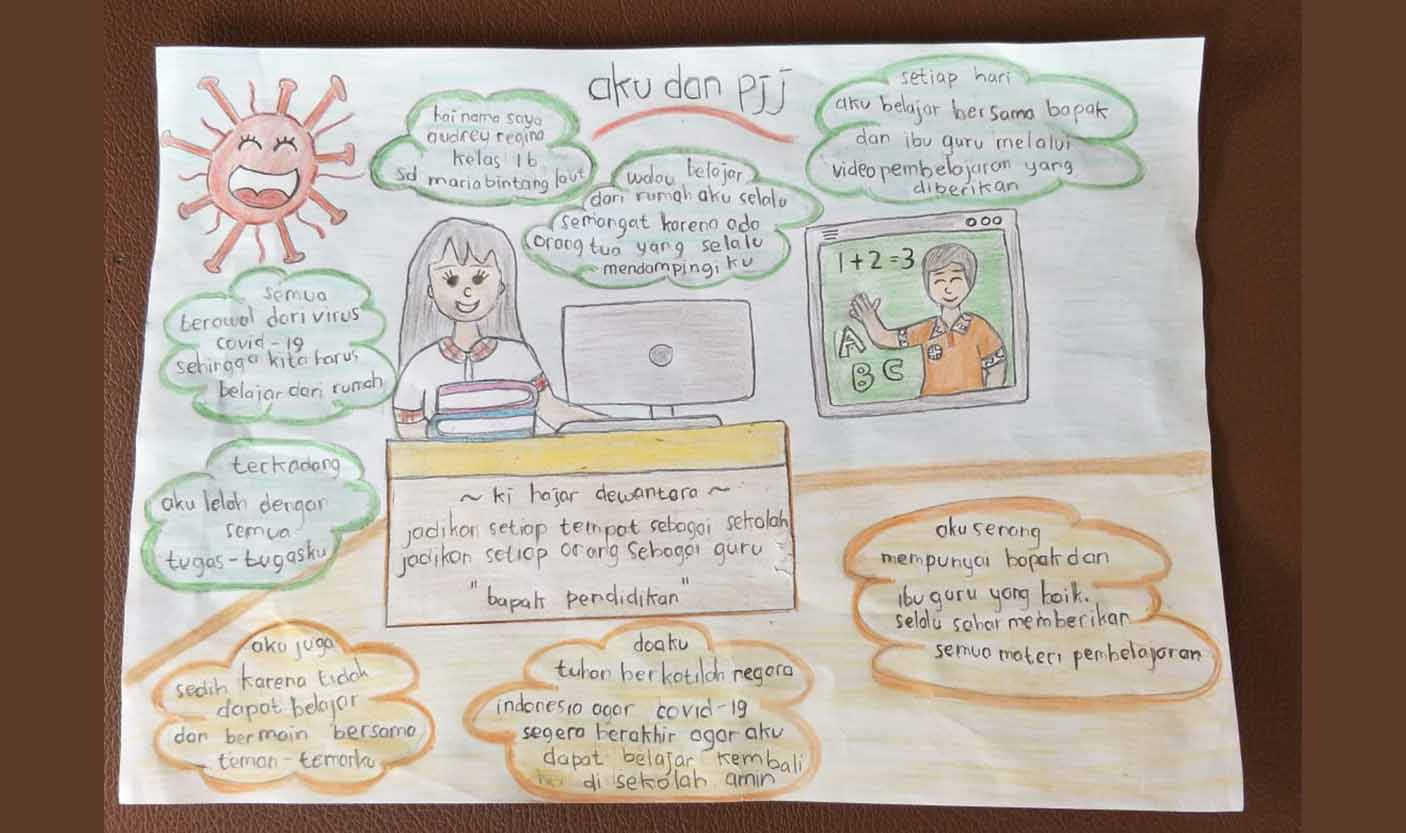 aku dan pjj
hai nama saya
audrey regina
kelas 1b
sd maria bintang laut
walau belajar
dari rumah aku selalu
semangat karena ada
orang tua yang selalu
mendampingi ku
setiap hari
aku belajar bersama bapak
dan ibu guru melalui
video pembelajaran yang
diberikan
1+2=3
A
B C
semua
berawal dari virus
covid-19
sehingga kita harus
belajar dari rumah
terkadang
aku lelah dengan
semua
tugas-tugasku
~ ki hajar dewantara ~
jadikan setiap tempat sebagai sekolah
jadikan setiap orang sebagai guru
"bapak pendidikan"
aku senang
mempunyai bapak dan
ibu guru yang baik.
selalu sabar memberikan
semua materi pembelajaran
aku juga
sedih karena tidak
dapat belajar
dan bermain bersama
teman-temanku
doaku
tuhan berkatilah negara
indonesia agar covid-19
segera berakhir agar aku
dapat belajar kembali
di sekolah amin